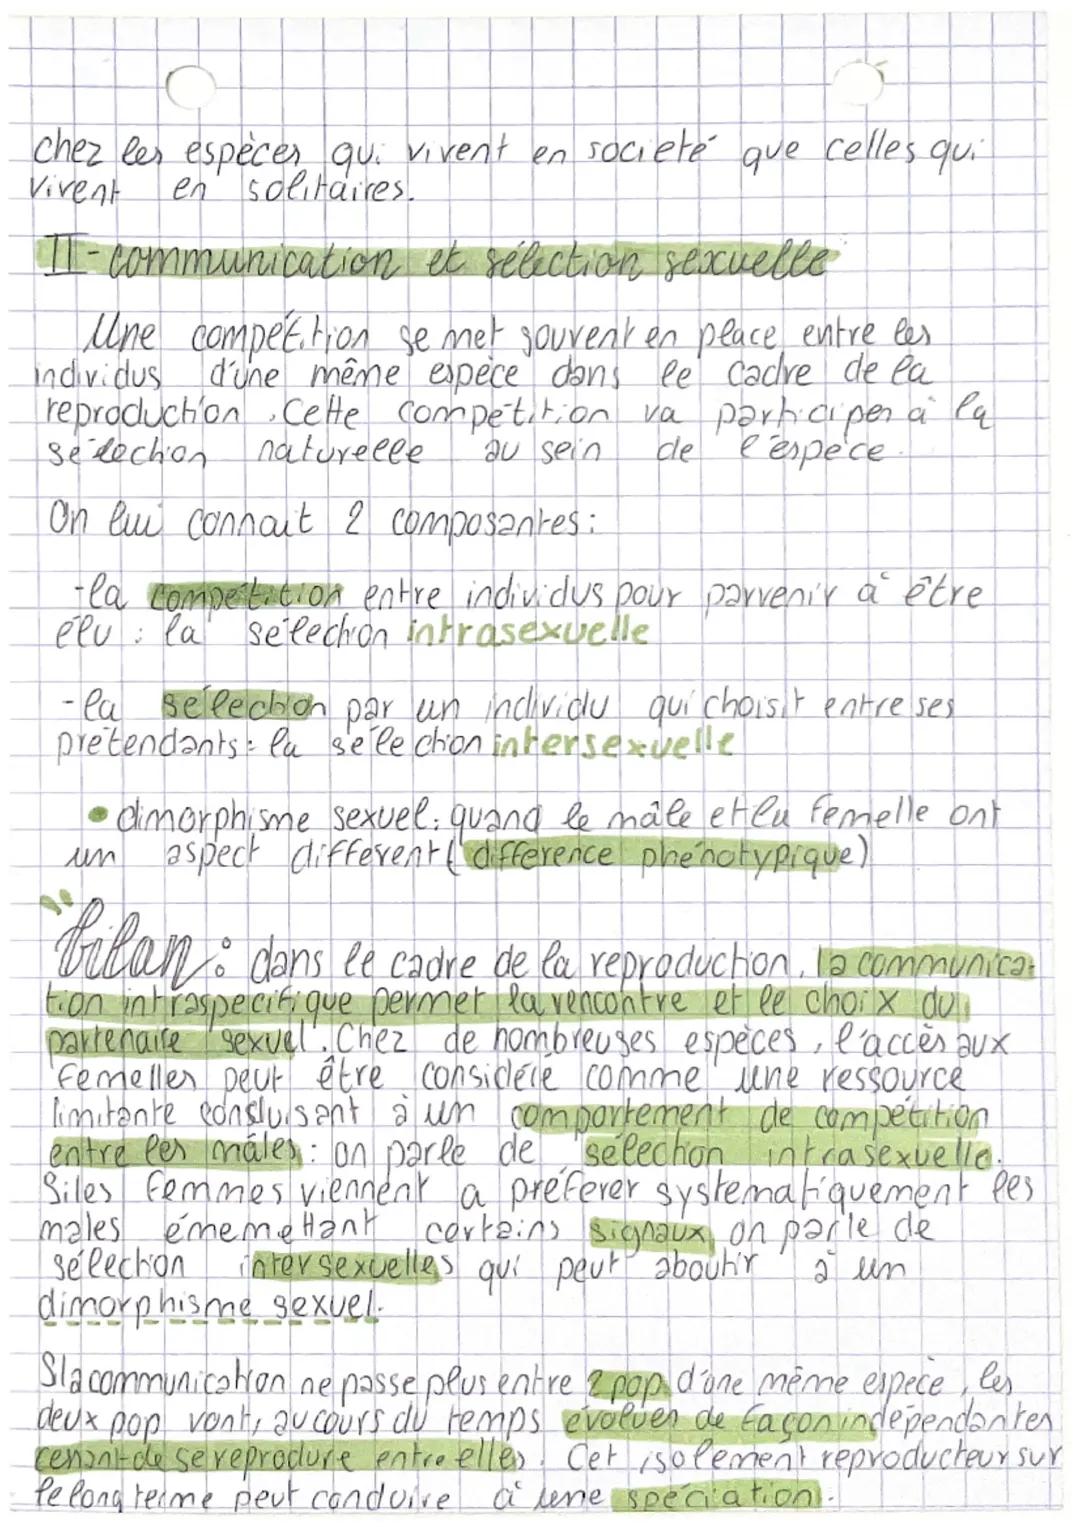 chez les espèces qui vivent en societé que celles qui
vivent en solitaires.
II-communication et sélection sexuelle
Une compétition se met souvent en place entre les
individus d'une même espèce dans le cadre de la
reproduction. Cette compétition va participer à la
sélection naturelle au sein de l'espèce.
On lui connait 2 composantes:
-la compétition entre individus pour parvenir à être
élu : la sélection intrasexuelle
-la sélection par un individu qui choisit entre ses
prétendants: la sélection intersexuelle
• dimorphisme sexuel: quand le mâle et la femelle ont
un aspect différent (différence phénotypique)
bilan : dans le cadre de la reproduction, la communica-
tion intraspécifique permet la rencontre et le choix du
partenaire sexuel. Chez de nombreuses espèces, l'accès aux
femelles peut être considéré comme une ressource
limitante consluisant à un comportement de compétition
entre les mâles: on parle de sélection intrasexuelle.
Si les femmes viennent a préférer systématiquement les
males émemettant certains signaux, on parle de
sélection intersexuelles qui peut aboutir à un
dimorphisme sexuel.
Si la communication ne passe plus entre 2 pop d'une même espèce, les
deux pop vont, au cours du temps évoluer de façon indépendantes
cessant de se reprodure entre elles. Cet isolement reproducteur sur
le long terme peut conduire à une spéciation.